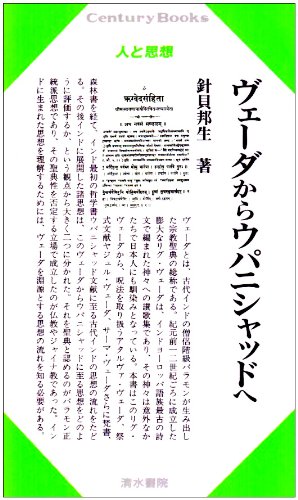 Century Books
人と思想
ヴェーダからウパニシャッドへ
針貝邦生 著
ऋग्वेदसंहिता
ヴェーダとは、古代インドの僧侶階級バラモンが生み出し
た宗教聖典の総称である。紀元前一二世紀ごろに成立した
膨大なリグ・ヴェーダは、インドヨーロッパ語族最古の詩
文で編まれた神々への讃歌集であり、その神々は意外なか
たちで日本人にも馴染みとなっている。本書はこのリグ・
ヴェーダから、呪法を取り扱うアタルヴァ・ヴェーダ、祭
式文献ヤジュル・ヴェーダ、サーマ・ヴェーダさらに梵書、
森林書を経て、インド最初の哲学書ウパニシャッド文献に至る古代インドの思想の流れをたど
る。その後インドに展開した諸思想は、このヴェーダからウパニシャッドに至る思想をどのよ
うに評価するか、という観点から大きく二つに分かれた。それを聖典と認めるのがバラモン正
統派思想であり、その聖典性を否定する立場で成立したのが仏教やジャイナ教であった。イン
ドに生まれた思想を理解するためには、ヴェーダを淵源とする思想の流れを知る必要がある。
清水書院